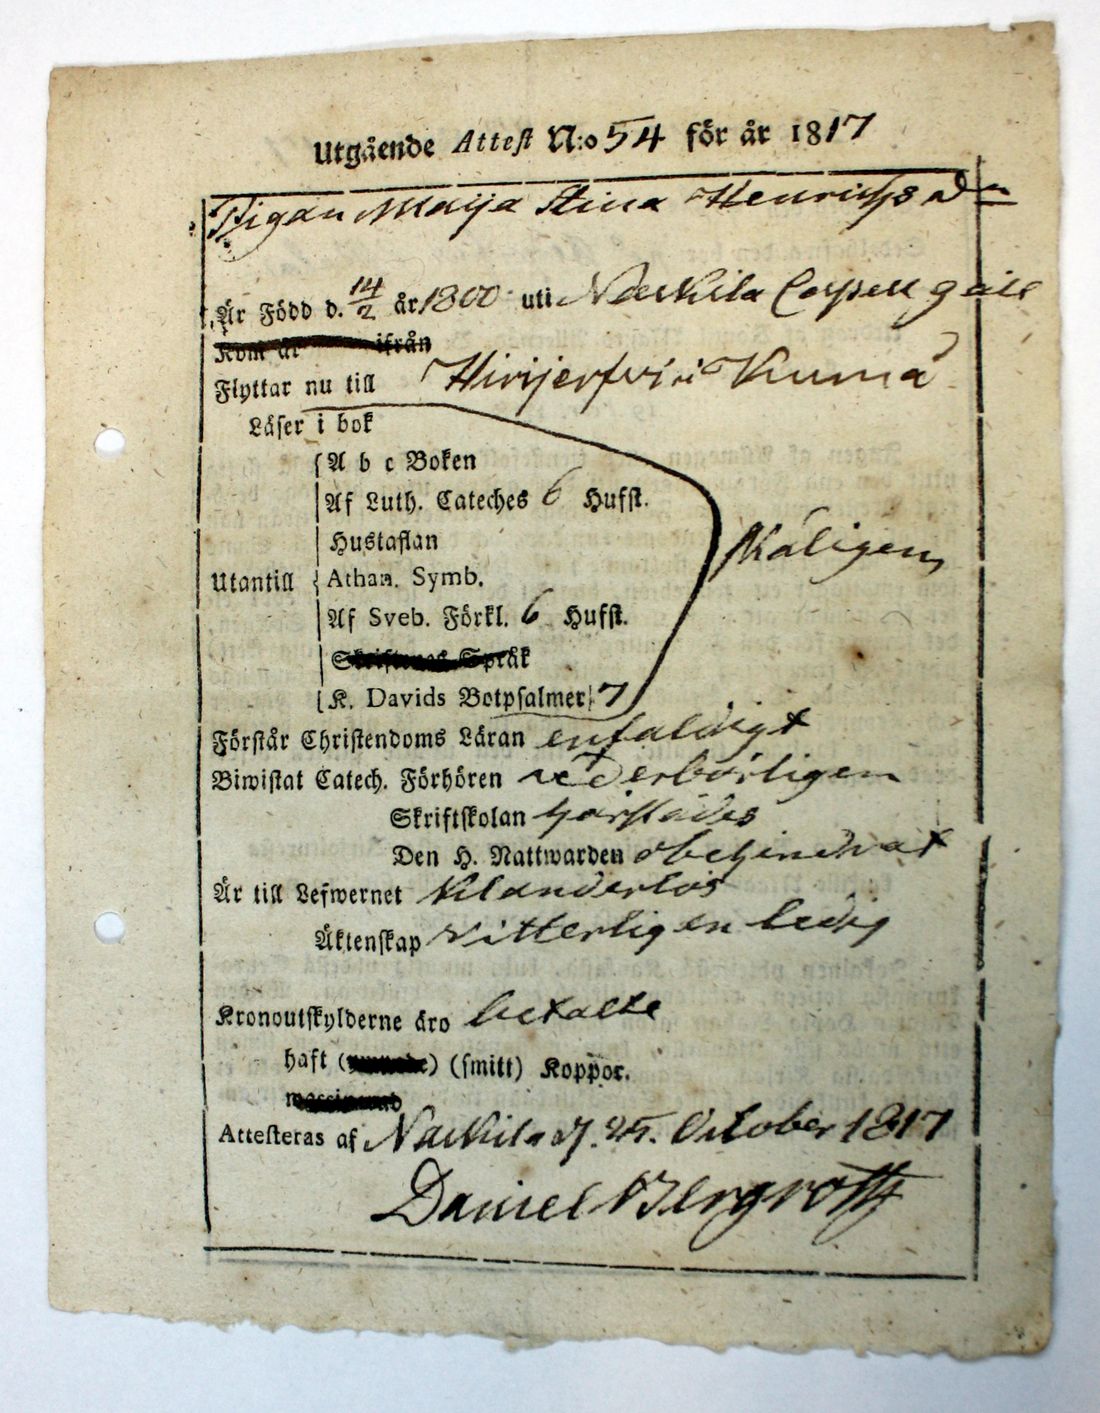 Utgående Attest N:o 54 för år 1817
Pigan Maija Stina Henrichsd:r
Är Född d. 14/2 år 1800 uti Nackila Capell gäll
Kom år ifrån
Flyttar nu till Hirijerfvi i Kumå
Läser i bok
A b c Boken
Af Luth. Cateches 6 Hufst.
Hustaflan
Utantill Athan. Symb. Måligen
Af Sveb. Förkl. 6 Hufst.
Skriftenes Språk
K. Davids Botpsalmer 7
Förstår Christendoms Läran enfaldigt
Biwistat Catech. Förhören vederbörligen
Skriftskolan härstädes
Den H. Nattwarden obehindrat
Är till Lefwernet Klanderlös
Äktenskap vitterligen ledig
Kronoutskylderne äro betalte
haft () (smitt) Koppor.
Attesteras af Nackila d. 25. October 1817
Daniel Bergroth